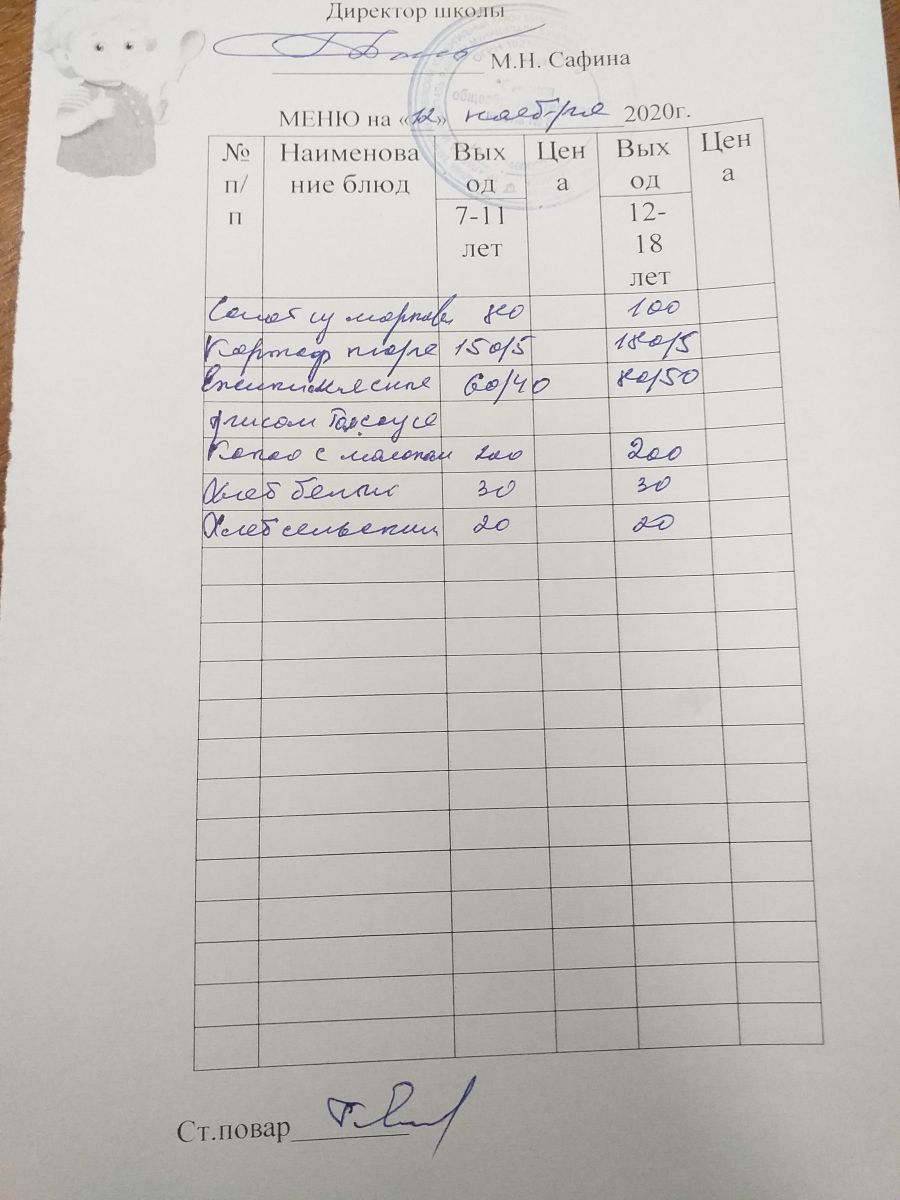 Директор школы
М.Н. Сафина
МЕНЮ на «12» ноября 2020г.
№ п/п Наименование блюд Выход 7-11 лет Цена Выход 12-18 лет Цена
Салат из моркови 80 100
Картоф пюре 150/5 180/5
Ежики мясные 60/40 80/50
с рисом Том соусе
Какао с молоком 200 200
Хлеб белый 30 30
Хлеб сельский 20 20
Ст.повар